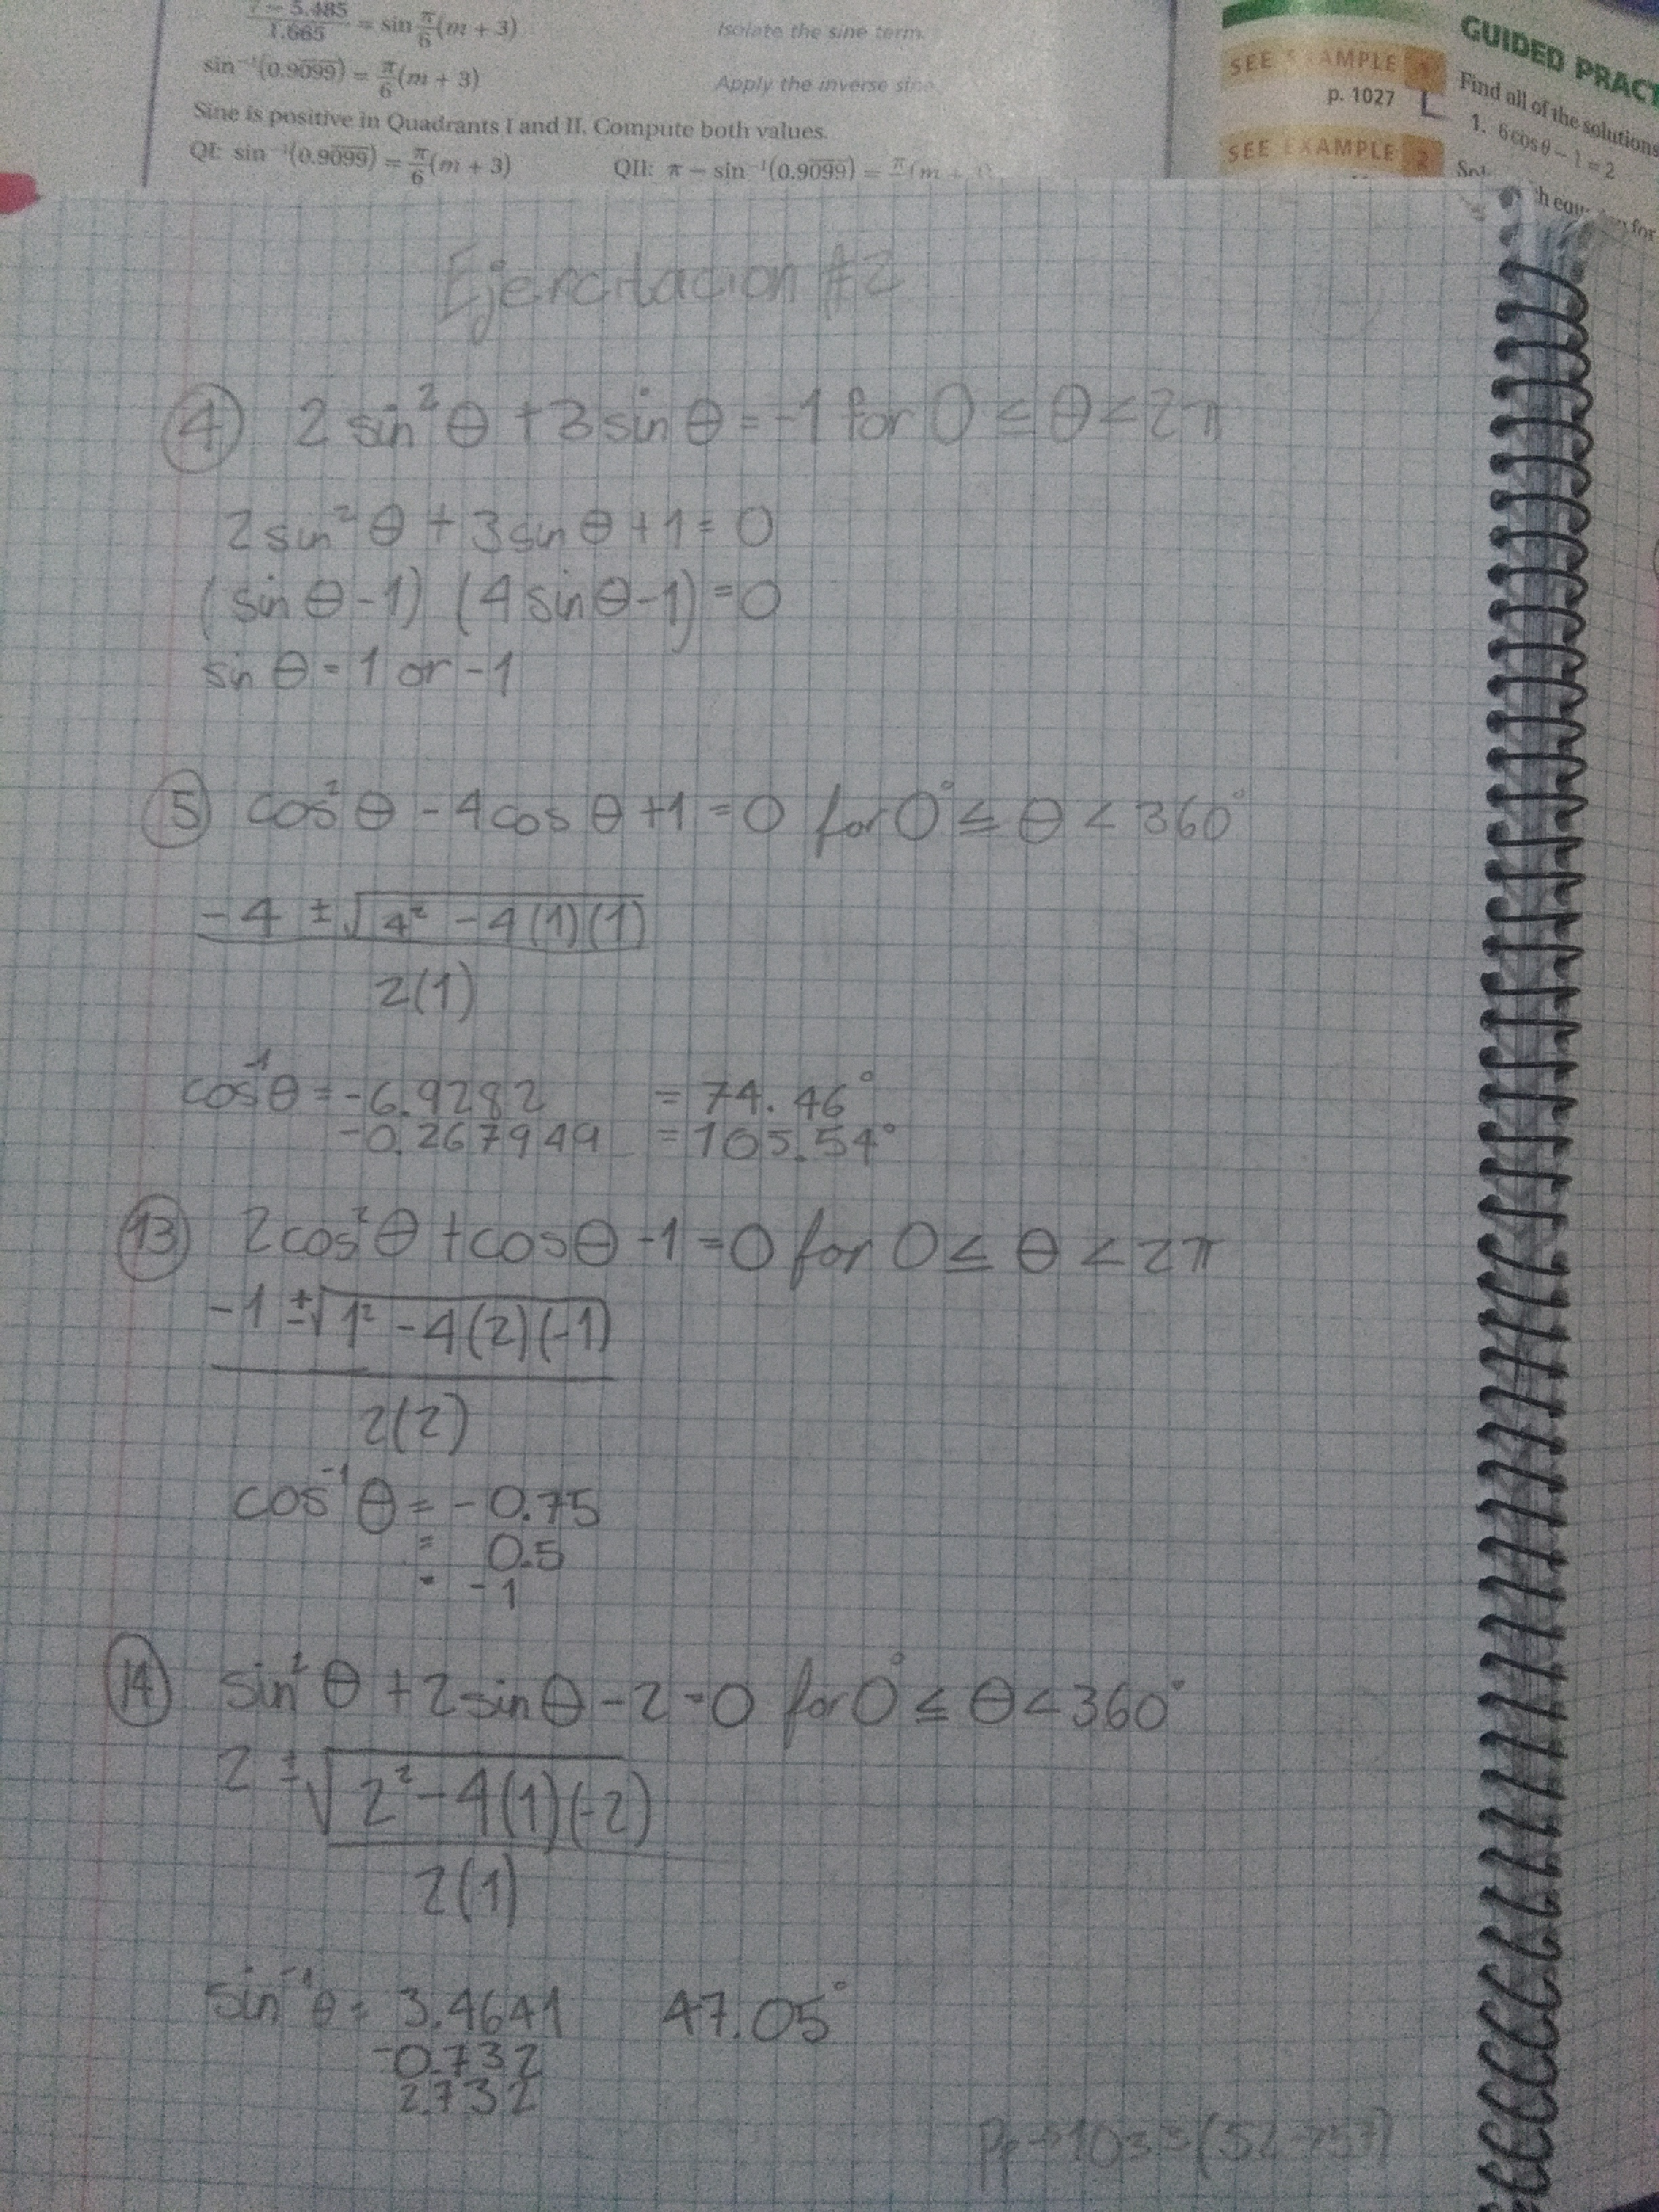 7 − 5.485 / 1.665 = sin π/6 (m + 3) Isolate the sine term.
sin⁻¹(0.9099) = π/6 (m + 3) Apply the inverse sine.
Sine is positive in Quadrants I and II. Compute both values.
QI: sin⁻¹(0.9099) = π/6 (m + 3) QII: π − sin⁻¹(0.9099) = π (m + 3)
GUIDED PRACT
SEE EXAMPLE 1
Find all of the solutions
p. 1027
1. 6 cos θ − 1 = 2
SEE EXAMPLE 2
for
Ejercitacion #2
④ 2 sin² θ + 3 sin θ = -1 for 0 ≤ θ < 2π
2 sin² θ + 3 sin θ + 1 = 0
(sin θ - 1) (4 sin θ - 1) = 0
sin θ = 1 or -1
⑤ cos² θ - 4 cos θ + 1 = 0 for 0° ≤ θ < 360°
-4 ± √4² - 4(1)(1)
2(1)
cos⁻¹ θ = -6.9282 = 74.46°
-0.267949 = 105.54°
⑬ 2 cos² θ + cos θ - 1 = 0 for 0 ≤ θ < 2π
-1 ± √1² - 4(2)(-1)
2(2)
cos⁻¹ θ = - 0.75
= 0.5
= -1
⑭ sin² θ + 2 sin θ - 2 = 0 for 0° ≤ θ < 360°
2 ± √2² - 4(1)(-2)
2(1)
sin⁻¹ θ = 3.4641 47.05°
-0.732
2.732